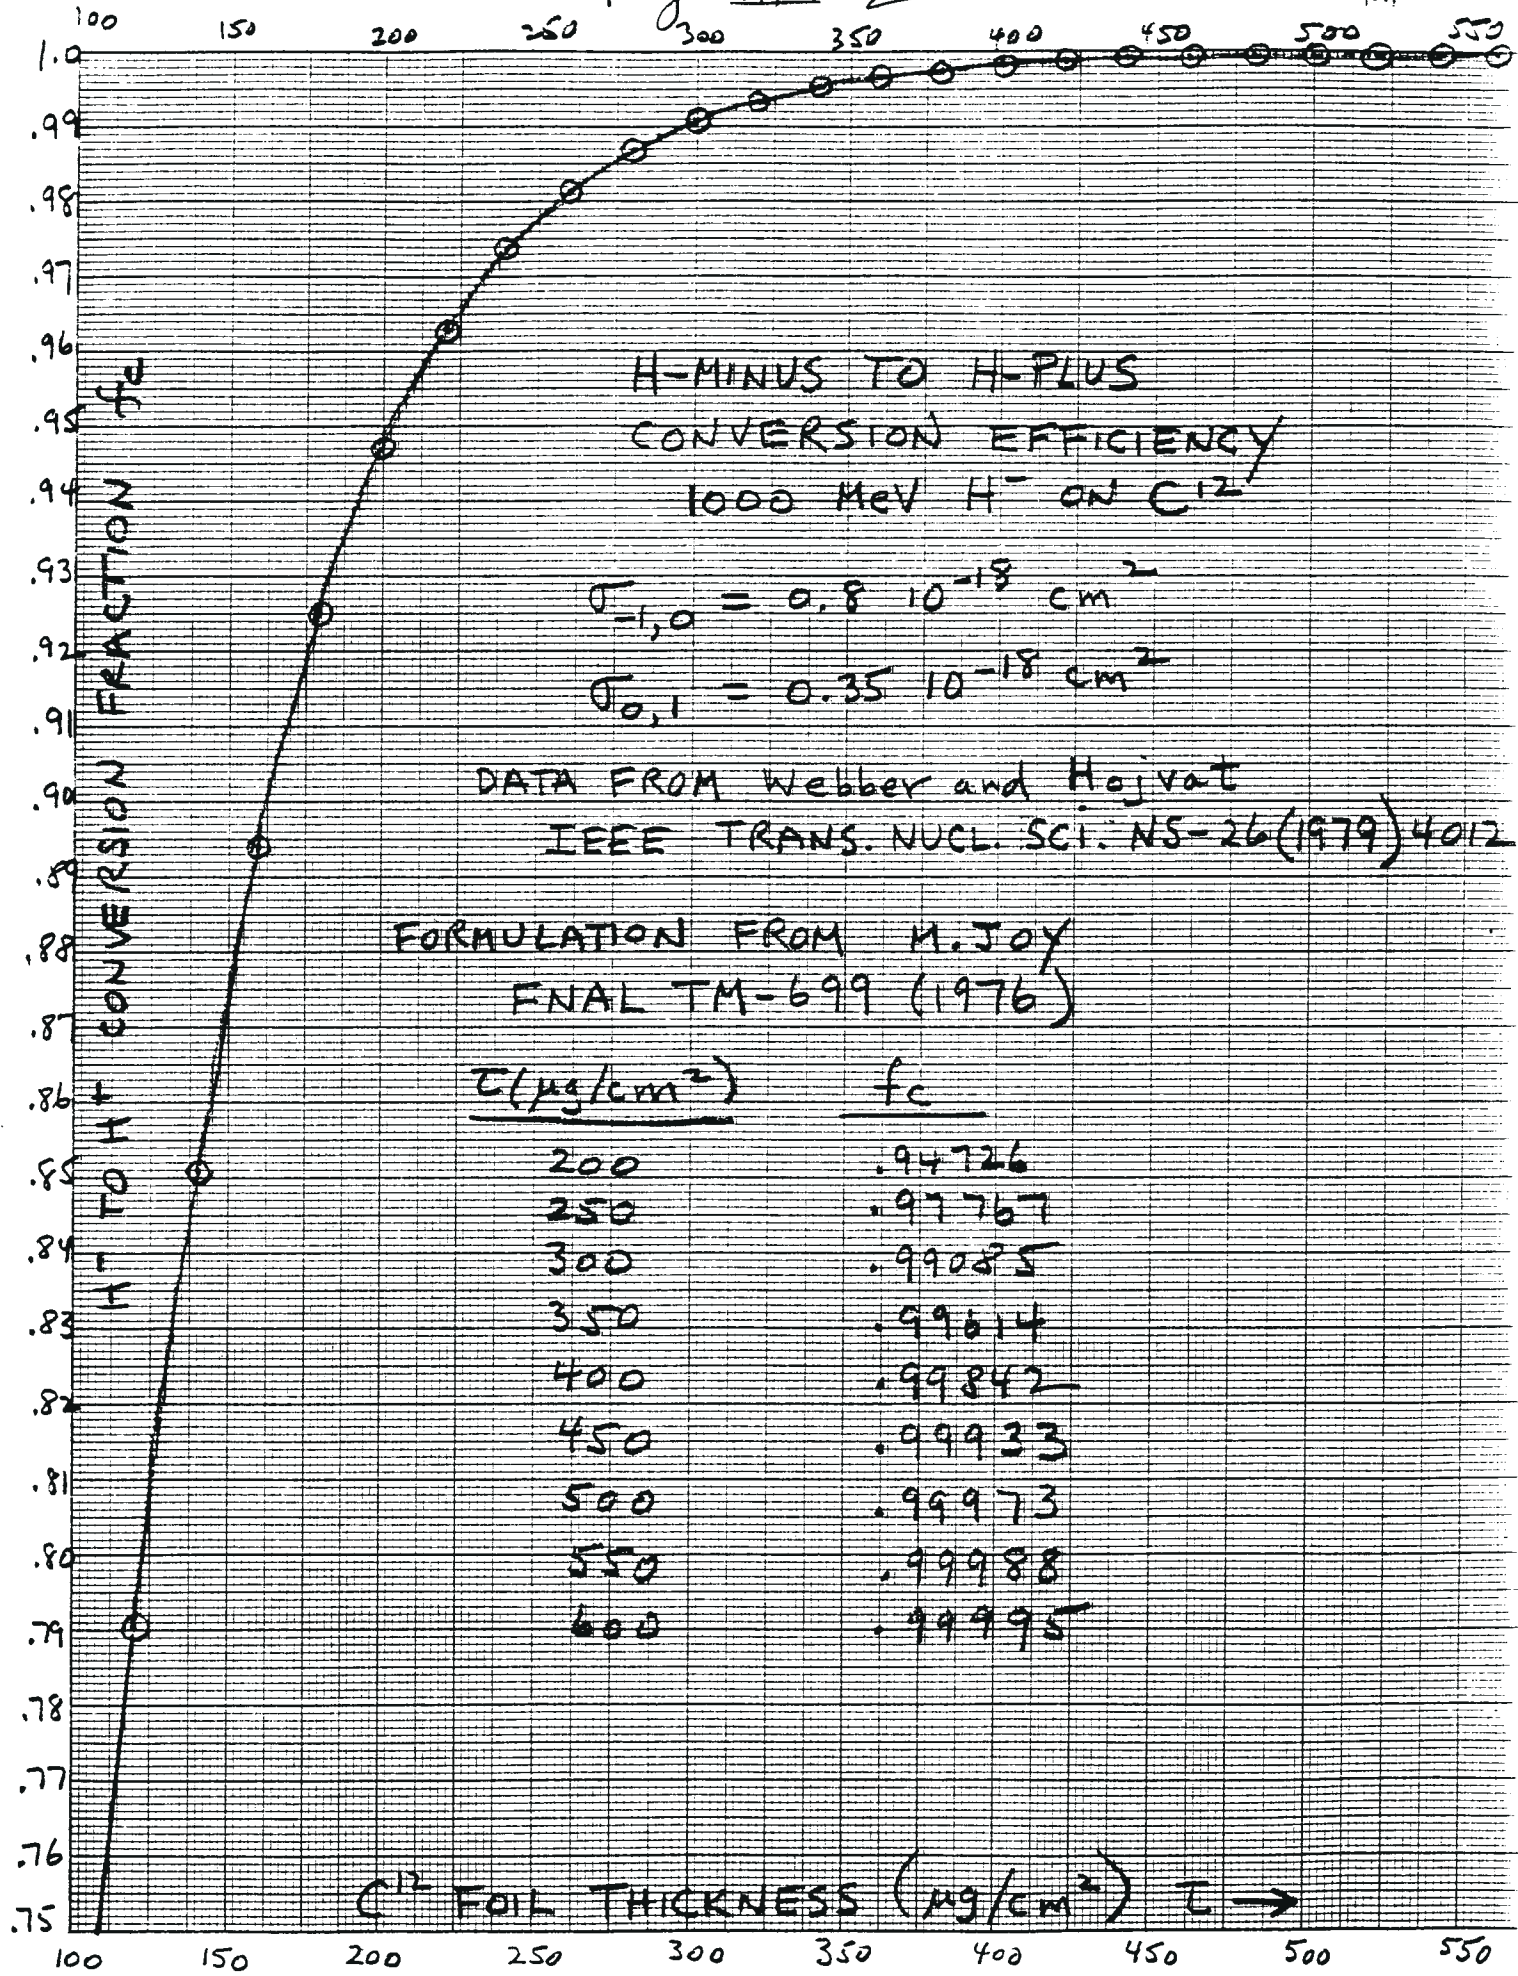 100 150 200 250 300 350 400 450 500 550
1.0
.99
.98
.97
.96
.95
.94
.93
.92
.91
.90
.89
.88
.87
.86
.85
.84
.83
.82
.81
.80
.79
.78
.77
.76
.75
H- TO H+ CONVERSION FRACTION fc
H-MINUS TO H-PLUS
CONVERSION EFFICIENCY
1000 MeV H⁻ ON C¹²
σ₋₁,₀ = 0.8 10⁻¹⁸ cm²
σ₀,₁ = 0.35 10⁻¹⁸ cm²
DATA FROM Webber and Hojvat
IEEE TRANS. NUCL. SCI. NS-26(1979)4012
FORMULATION FROM M. JOY
FNAL TM-699 (1976)
τ(μg/cm²) fc
200 .94726
250 .97767
300 .99085
350 .99614
400 .99842
450 .99933
500 .99973
550 .99988
600 .99995
C¹² FOIL THICKNESS (μg/cm²) τ →
100 150 200 250 300 350 400 450 500 550